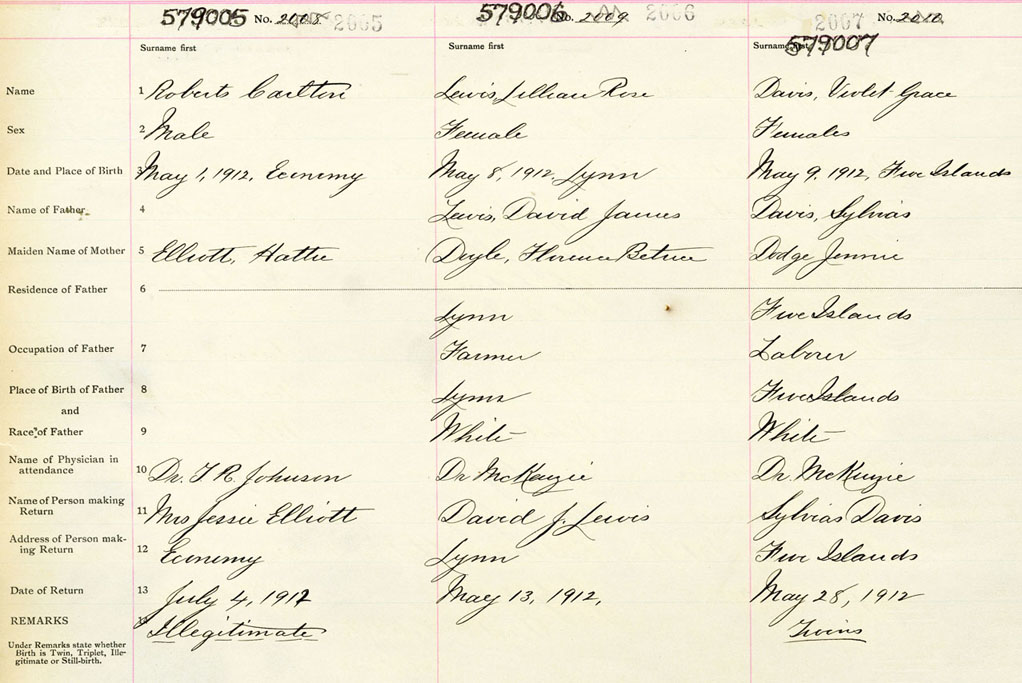 579005 No. 2008 2005 579006 No. 2009 2006 2007 No. 2010
579007
Surname first Surname first Surname first
Name 1 Roberts Carlton Lewis, Lillian Rose Davis, Violet Grace
Sex 2 Male Female Females
Date and Place of Birth 3 May 1, 1912, Economy May 8, 1912, Lynn May 9, 1912, Five Islands
Name of Father 4 Lewis, David James Davis, Sylvias
Maiden Name of Mother 5 Elliott, Hattie Doyle, Florence Dodge Jennie
Residence of Father 6
Lynn Five Islands
Occupation of Father 7 Farmer Laborer
Place of Birth of Father 8 Lynn Five Islands
and
Race of Father 9 White White
Name of Physician in
attendance 10 Dr. T. R. Johnson Dr McKenzie Dr. McKenzie
Name of Person making
Return 11 Mrs Jessie Elliott David J. Lewis Sylvias Davis
Address of Person mak-
ing Return 12 Economy Lynn Five Islands
Date of Return 13 July 4, 1912 May 13, 1912, May 28, 1912
REMARKS 14 Illegitimate Twins
Under Remarks state whether
Birth is Twin, Triplet, Ille-
gitimate or Still-birth.